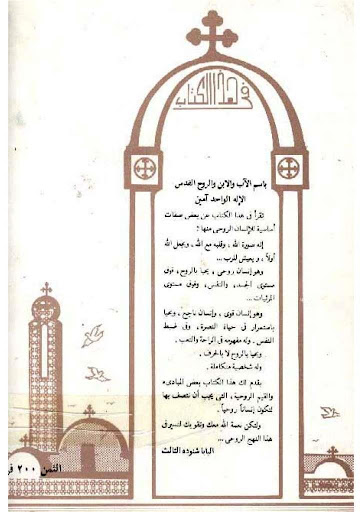 فى هذا الكتاب
باسم الآب والابن والروح القدس
الإله الواحد آمين
تقرأ فى هذا الكتاب عن بعض صفات
أساسية للإنسان الروحى منها :
إنه صورة الله ، وقلبه مع الله ، ويجعل الله
أولاً ، ويعيش للرب ...
وهو إنسان روحى ، يحيا بالروح، فوق
مستوى الجسد، والنفس، وفوق مستوى
المرئيات ...
وهو إنسان قوى ، وإنسان ناجح ، ويحيا
باستمرار فى حياة النصرة، وفى ضبط
النفس . وله مفهومه فى الراحة والتعب .
ويحيا بالروح لا بالحرف .
وله شخصية متكاملة .
يقدم لك هذا الكتاب بعض المبادىء
والقيم الروحية ، التى يجب أن نتصف بها
لتكون إنساناً روحياً .
ولتكن نعمة الله معك وتقويك لتسير فى
هذا النهج الروحى ...
البابا شنوده الثالث
الثمن ٢٠٠ قر